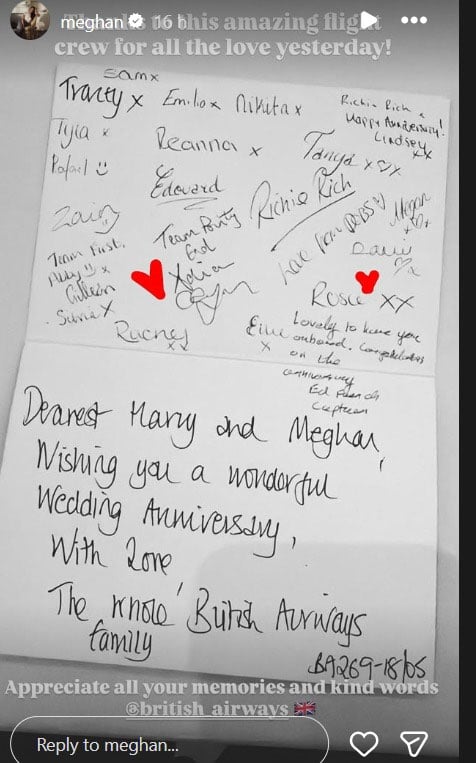 meghan 16 h
this amazing flight
crew for all the love yesterday!
Sam x
Tracey x Emilio x Nikita x
Richie Rich x
Happy Anniversary!
Lindsey
xx
Tyra x
Deanna x
Tanya x x
Rafael
Edouard
Richie Rich
Megan
Zainy
Team Purity
love from
Team First,
Abby x
Colleen
Rosie xx
Rachey
xx
Lovely to have you
onboard. Congratulations
on the
anniversary
Ed French
Captain
Dearest Harry and Meghan,
Wishing you a wonderful
Wedding Anniversary,
With Love,
The whole British Airways
family
BA269-18/05
Appreciate all your memories and kind words
@british_airways 🇬🇧
Reply to meghan...